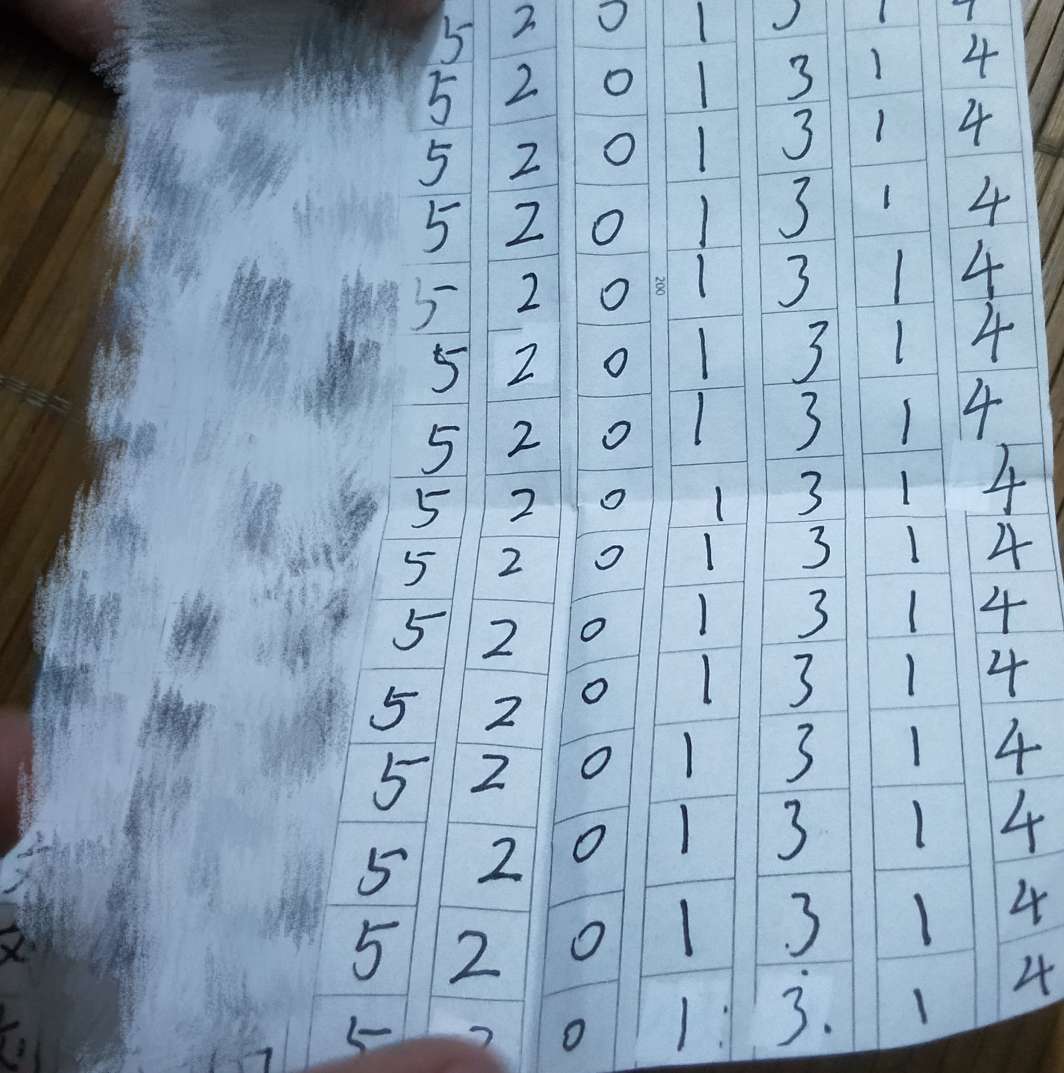 5 2 0 1 3 1 4
5 2 0 1 3 1 4
5 2 0 1 3 1 4
5 2 0 1 3 1 4
5 2 0 1 3 1 4
200
5 2 0 1 3 1 4
5 2 0 1 3 1 4
5 2 0 1 3 1 4
5 2 0 1 3 1 4
5 2 0 1 3 1 4
5 2 0 1 3 1 4
5 2 0 1 3 1 4
5 2 0 1 3 1 4
5 2 0 1 3 1 4
5 2 0 1 3 1 4